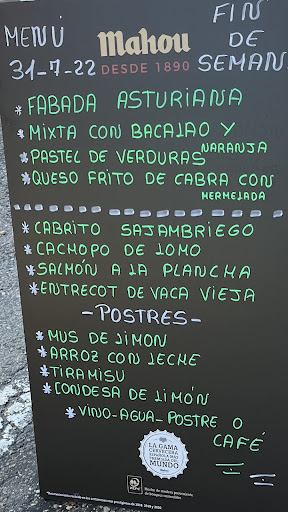 MENÚ
FIN
DE
SEMAN
31-7-22
Mahou
DESDE 1890
*FABADA ASTURIANA
*MIXTA CON BACALAO Y
NARANJA
*PASTEL DE VERDURAS
*QUESO FRITO DE CABRA CON
MERMELADA
*CABRITO SAJAMBRIEGO
*CACHOPO DE LOMO
*SALMÓN A LA PLANCHA
*ENTRECOT DE VACA VIEJA
-POSTRES-
*MUS DE LIMON
*ARROZ CON LECHE
*TIRAMISU
*CONDESA DE LIMÓN
*VINO-AGUA-POSTRE O
CAFÉ
LA GAMA
CERVECERA
ESPAÑOLA MÁS
PREMIADA DEL
MUNDO
PEFC